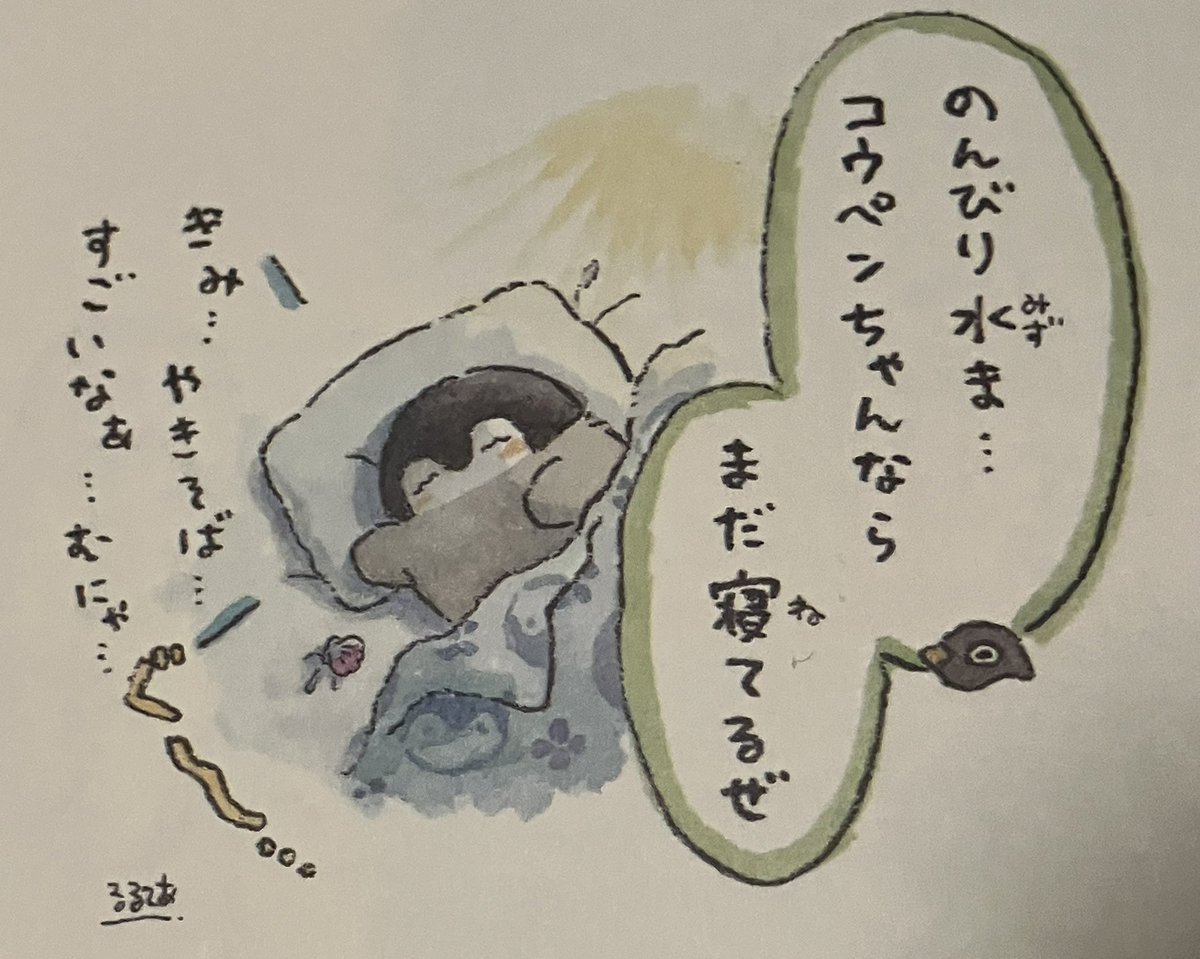 のんびり水ま…
みず
コウペンちゃんなら
まだ寝てるぜ
ね
きみ…やきそば…
すごいなぁ…むにゃ…
るるてあ